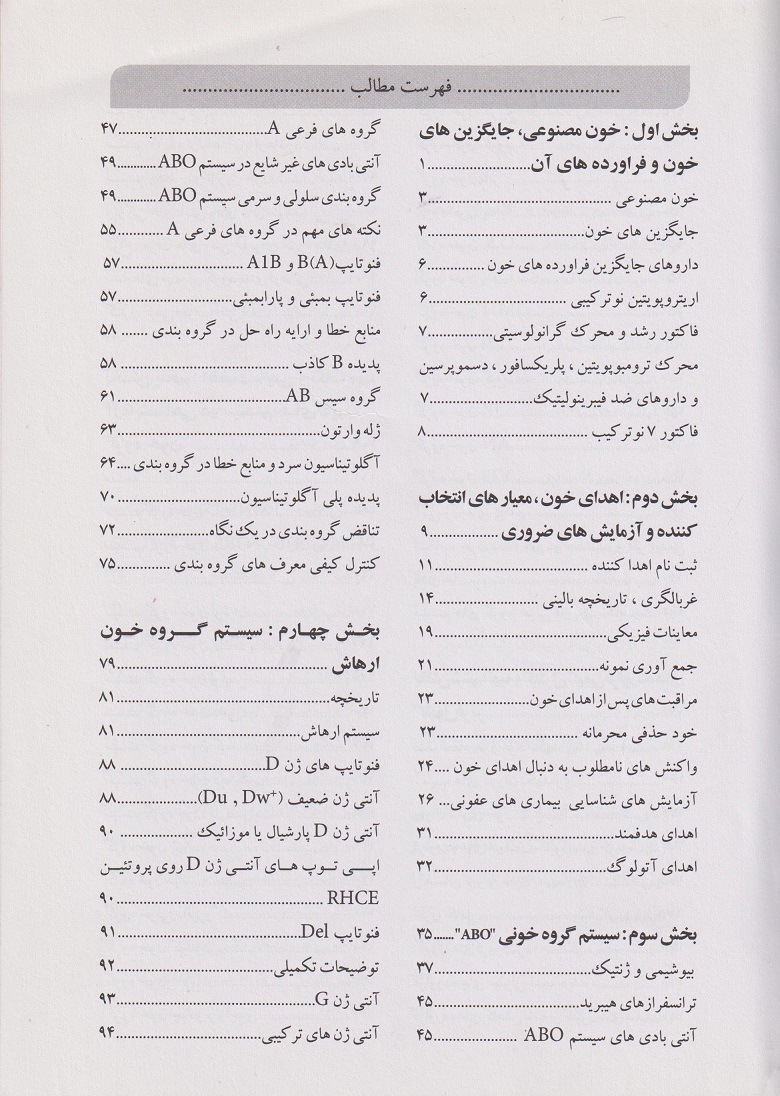 .............................. فهرست مطالب ..............................
بخش اول : خون مصنوعی، جایگزین های
خون و فراورده های آن..................۱
خون مصنوعی ..................۳
جایگزین های خون..................۳
داروهای جایگزین فراورده های خون ..................۶
اریتروپویتین نوترکیبی ..................۶
فاکتور رشد و محرک گرانولوسیتی..................۷
محرک ترومبوپویتین ، پلریکسافور ، دسموپرسین
و داروهای ضد فیبرینولیتیک..................۷
فاکتور ۷ نوترکیب ..................۸
بخش دوم : اهدای خون ، معیار های انتخاب
کننده و آزمایش های ضروری ..................۹
ثبت نام اهدا کننده ..................۱۱
غربالگری ، تاریخچه بالینی ..................۱۴
معاینات فیزیکی..................۱۹
جمع آوری نمونه..................۲۱
مراقبت‌های پس از اهدای خون..................۲۳
خود حذفی محرمانه ..................۲۳
واکنش های نامطلوب به دنبال اهدای خون ....۲۴
آزمایش های شناسایی بیماری های عفونی... ۲۶
اهدای هدفمند..................۳۱
اهدای آتولوگ..................۳۲
بخش سوم : سیستم گروه خونی "ABO"......۳۵
بیوشیمی و ژنتیک..................۳۷
ترانسفرازهای هیبرید..................۴۵
آنتی بادی های سیستم ABO ..................۴۵
گروه های فرعی A..................۴۷
آنتی بادی های غیر شایع در سیستم ABO............۴۹
گروه بندی سلولی و سرمی سیستم ABO............۴۹
نکته های مهم در گروه های فرعی A ............۵۵
فنوتایپ B(A) و A1B ..................۵۷
فنوتایپ بمبئی و پارابمبئی..................۵۷
منابع خطا و ارایه راه حل در گروه بندی ...... ۵۸
پدیده B کاذب .................. ۵۸
گروه سیس AB..................۶۱
ژله وارتون..................۶۳
آگلوتیناسیون سرد و منابع خطا در گروه بندی ....۶۴
پدیده پلی آگلوتیناسیون..................۷۰
تناقض گروه بندی در یک نگاه..................۷۲
کنترل کیفی معرف های گروه بندی ..............۷۵
بخش چهارم : سیستم گروه خون
ارهاش ..................۷۹
تاریخچه..................۸۱
سیستم ارهاش..................۸۱
فنوتایپ های ژن D.................. ۸۸
آنتی ژن ضعیف (Du , Dw⁺)..................۸۸
آنتی ژن D پارشیال یا موزائیک .................. ۹۰
اپی توپ های آنتی ژن D روی پروتئین
RHCE ..................۹۰
فنوتایپ Del..................۹۱
توضیحات تکمیلی..................۹۲
آنتی ژن G..................۹۳
آنتی ژن های ترکیبی..................۹۴